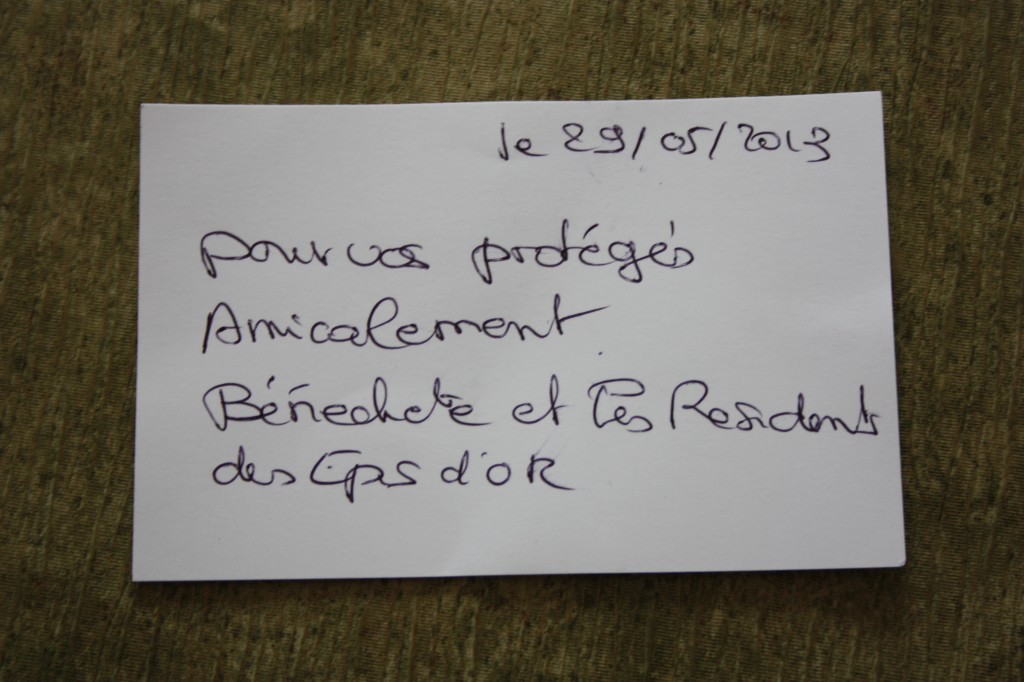 le 29/05/2013
pour vos protégés
Amicalement
Bénedicte et les Residents
des Epis d'OR